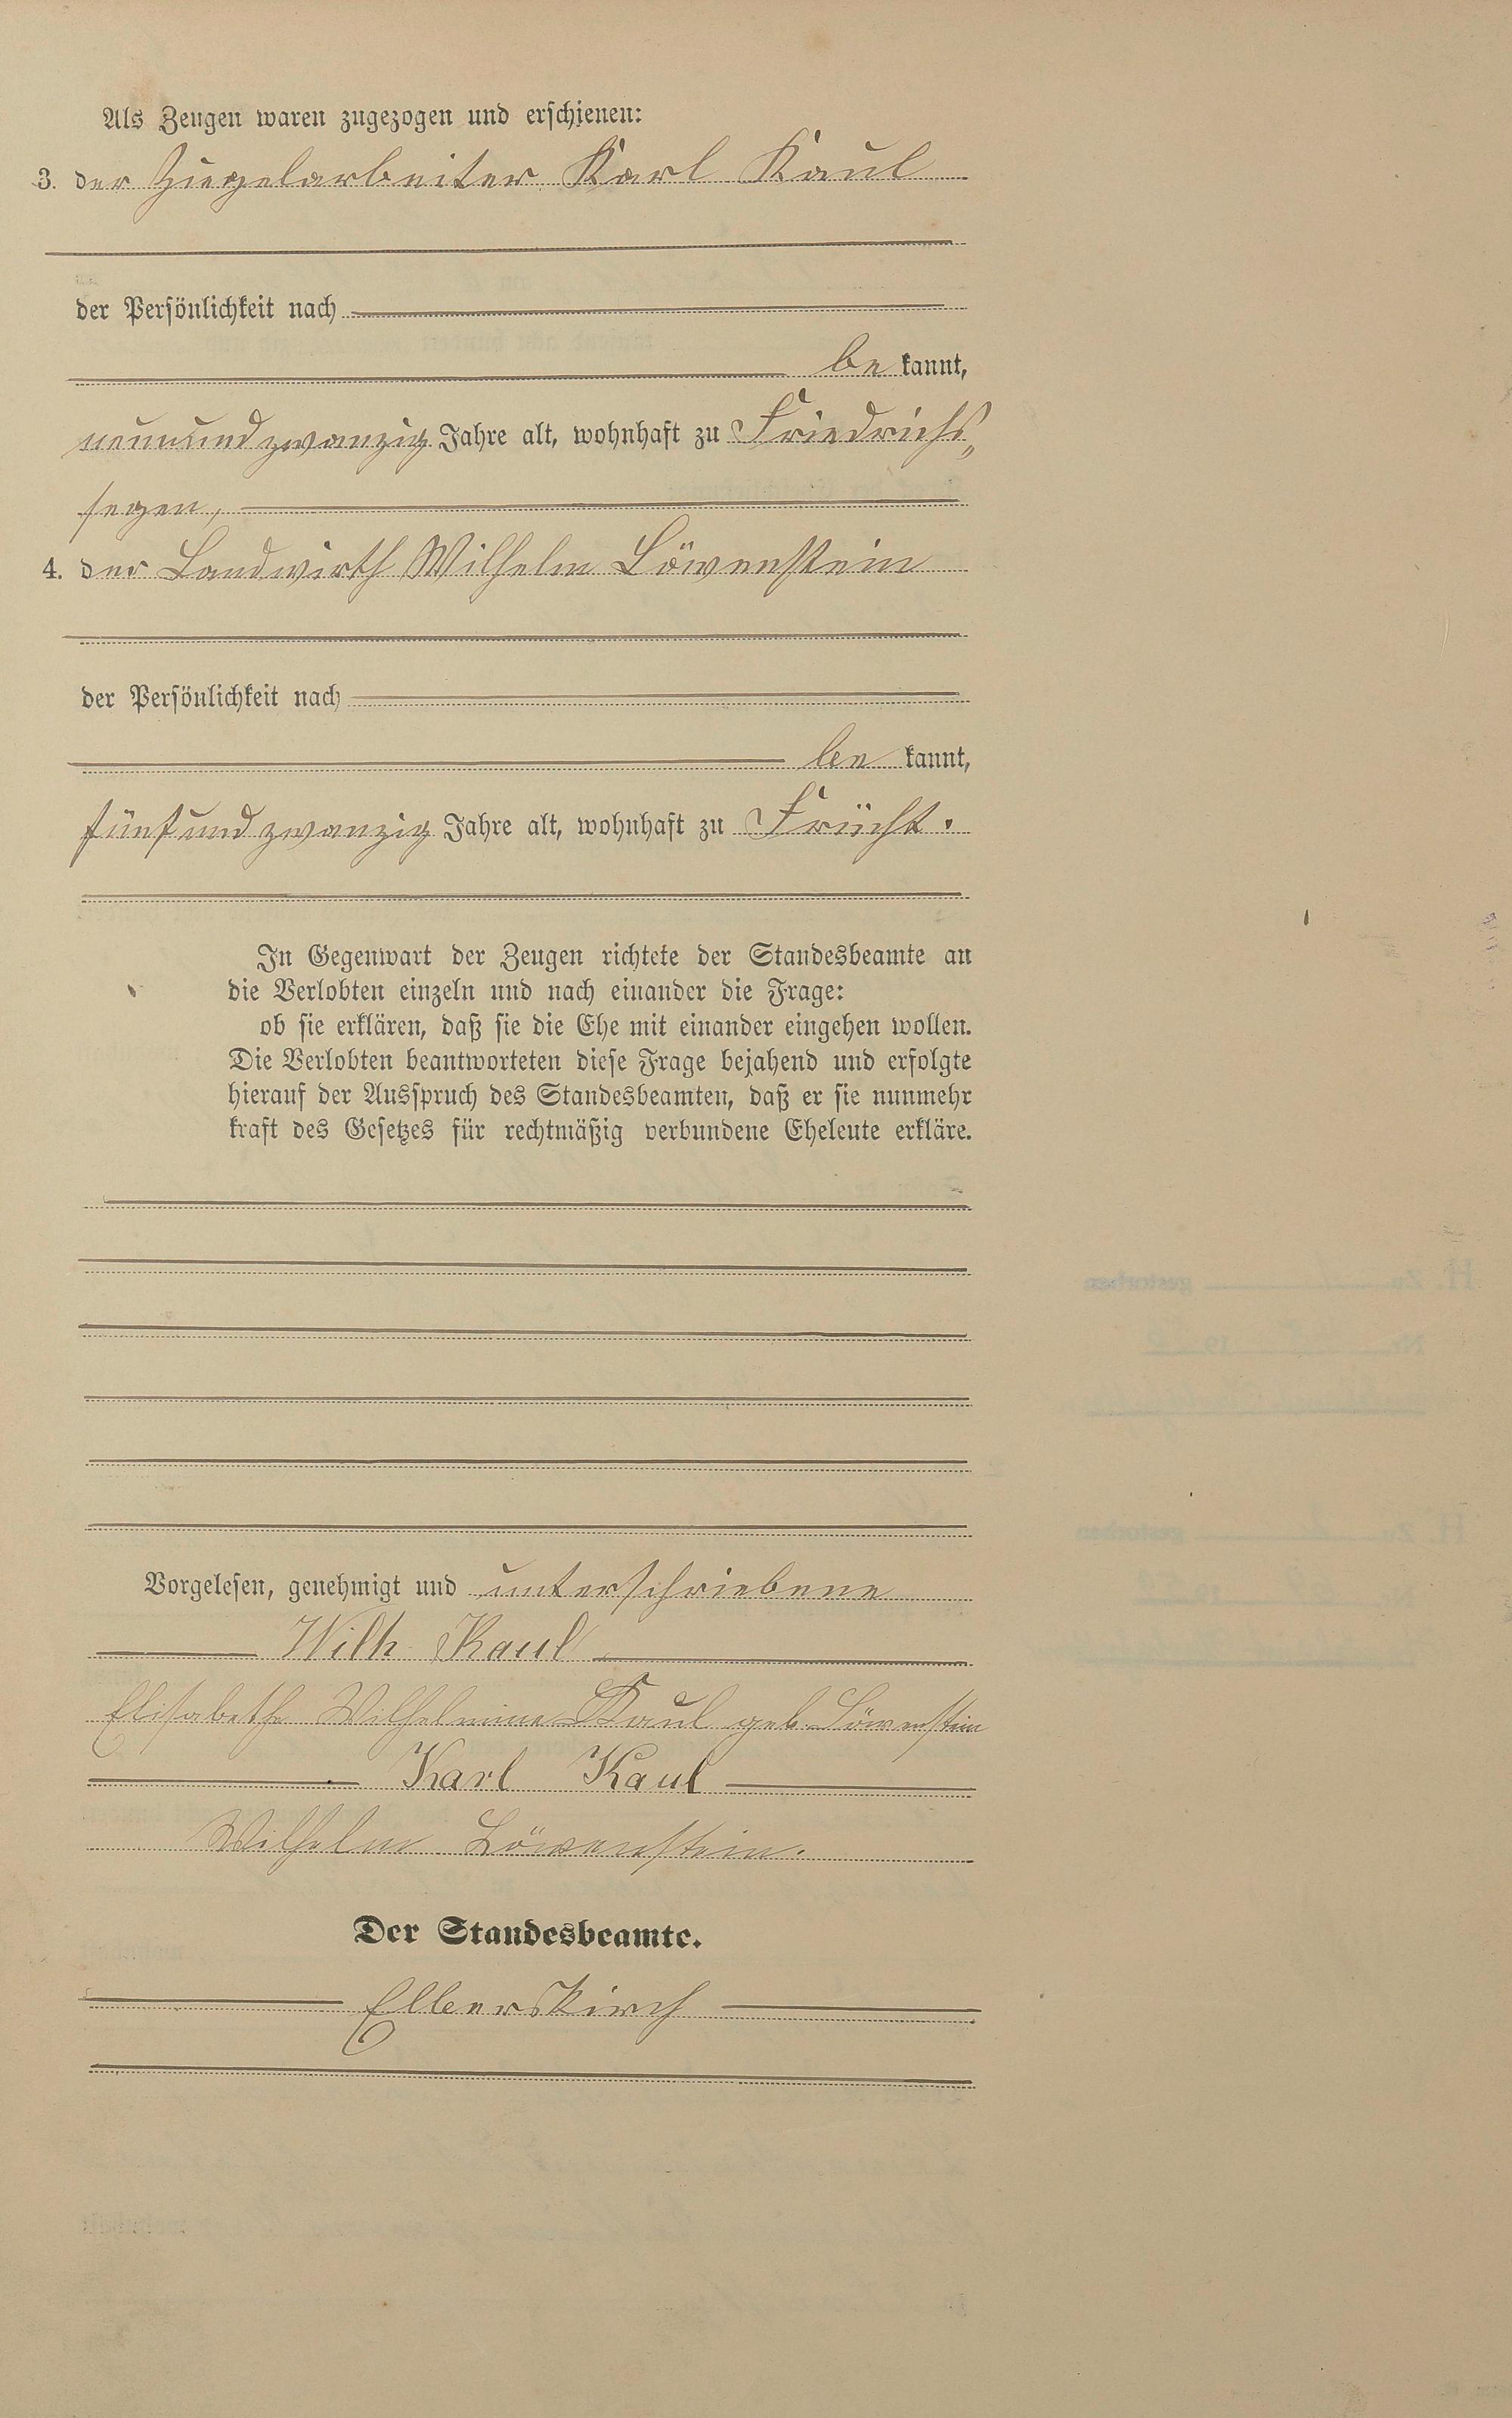 Als Zeugen waren zugezogen und erschienen:
3. der Ziegelarbeiter Karl Kaul
der Persönlichkeit nach
be kannt,
neunundzwanzig Jahre alt, wohnhaft zu Friedrichs„
segen,
4. der Landwirth Wilhelm Löwenstein
der Persönlichkeit nach
be kannt,
fünfundzwanzig Jahre alt, wohnhaft zu Frücht.
In Gegenwart der Zeugen richtete der Standesbeamte an
die Verlobten einzeln und nach einander die Frage:
ob sie erklären, daß sie die Ehe mit einander eingehen wollen.
Die Verlobten beantworteten diese Frage bejahend und erfolgte
hierauf der Ausspruch des Standesbeamten, daß er sie nunmehr
kraft des Gesetzes für rechtmäßig verbundene Eheleute erkläre.
Vorgelesen, genehmigt und unterschriebene
Wilh. Kaul
Elisabethe Wilhelmine Kaul geb. Löwenstein
Karl Kaul
Wilhelm Löwenstein.
Der Standesbeamte.
Elberskirch